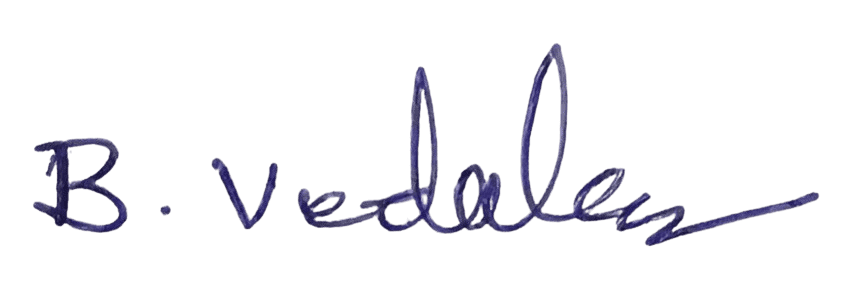 B. Vedalen